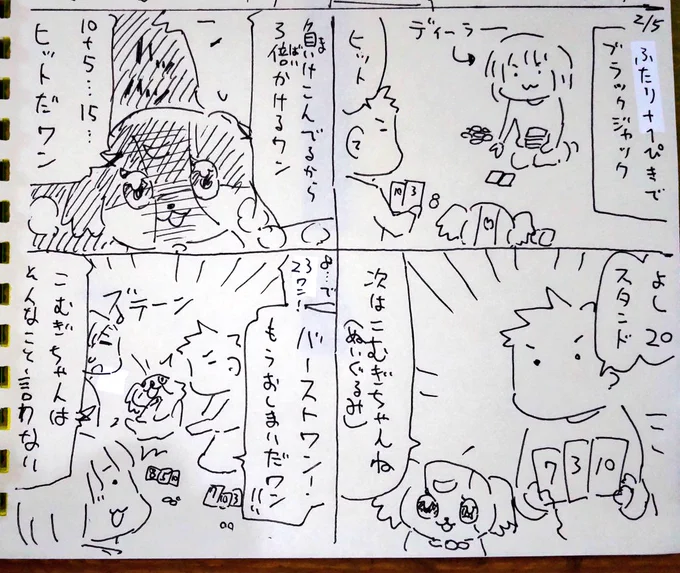 2/5
ふたりと1ぴきで
ブラックジャック
ディーラー
ヒット
10 3
8
10
よし 20
スタンド
7 3 10
次はこむぎちゃんね
(ぬいぐるみ)
負けこんでるから
ま
3倍かけるワン
ばい
10+5…15…
ヒットだワン
8…で
23ワン!
バーストワン!
もうおしまいだワン!!!
ズデーン
8 5 10
7 10 3
こむぎちゃんは
そんなこと言わない